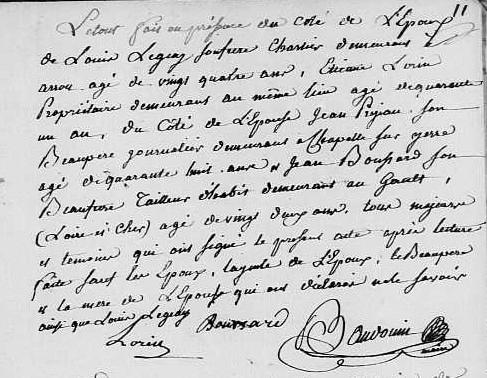 11
Le tout fait en présence du côté de L'Epoux
de Louis Legeay son frère Chartier demeurant à
arrou agé de vingt quatre ans, Etienne Lorin
Propriétaire demeurant au même lieu agé de quarante
un an, du Côté de L'Epouse Jean Pijeau son
Beaupere journalier demeurant a Chapelle sur yerre
agé de quarante huit ans & Jean Boussard son
Beaufrere Tailleur d'habits demeurant au Gault,
(Loire et Cher) agé de vingt deux ans, tous majeurs
et temoins qui ont signé le present acte après lecture
faite sauf les Epoux, layeule de L'Epoux, le Beaupere
& la mere de L'Epouse qui ont déclaré ne le savoir
ainsi que Louis Legeay
Lorin Boussard Baudouin
maire